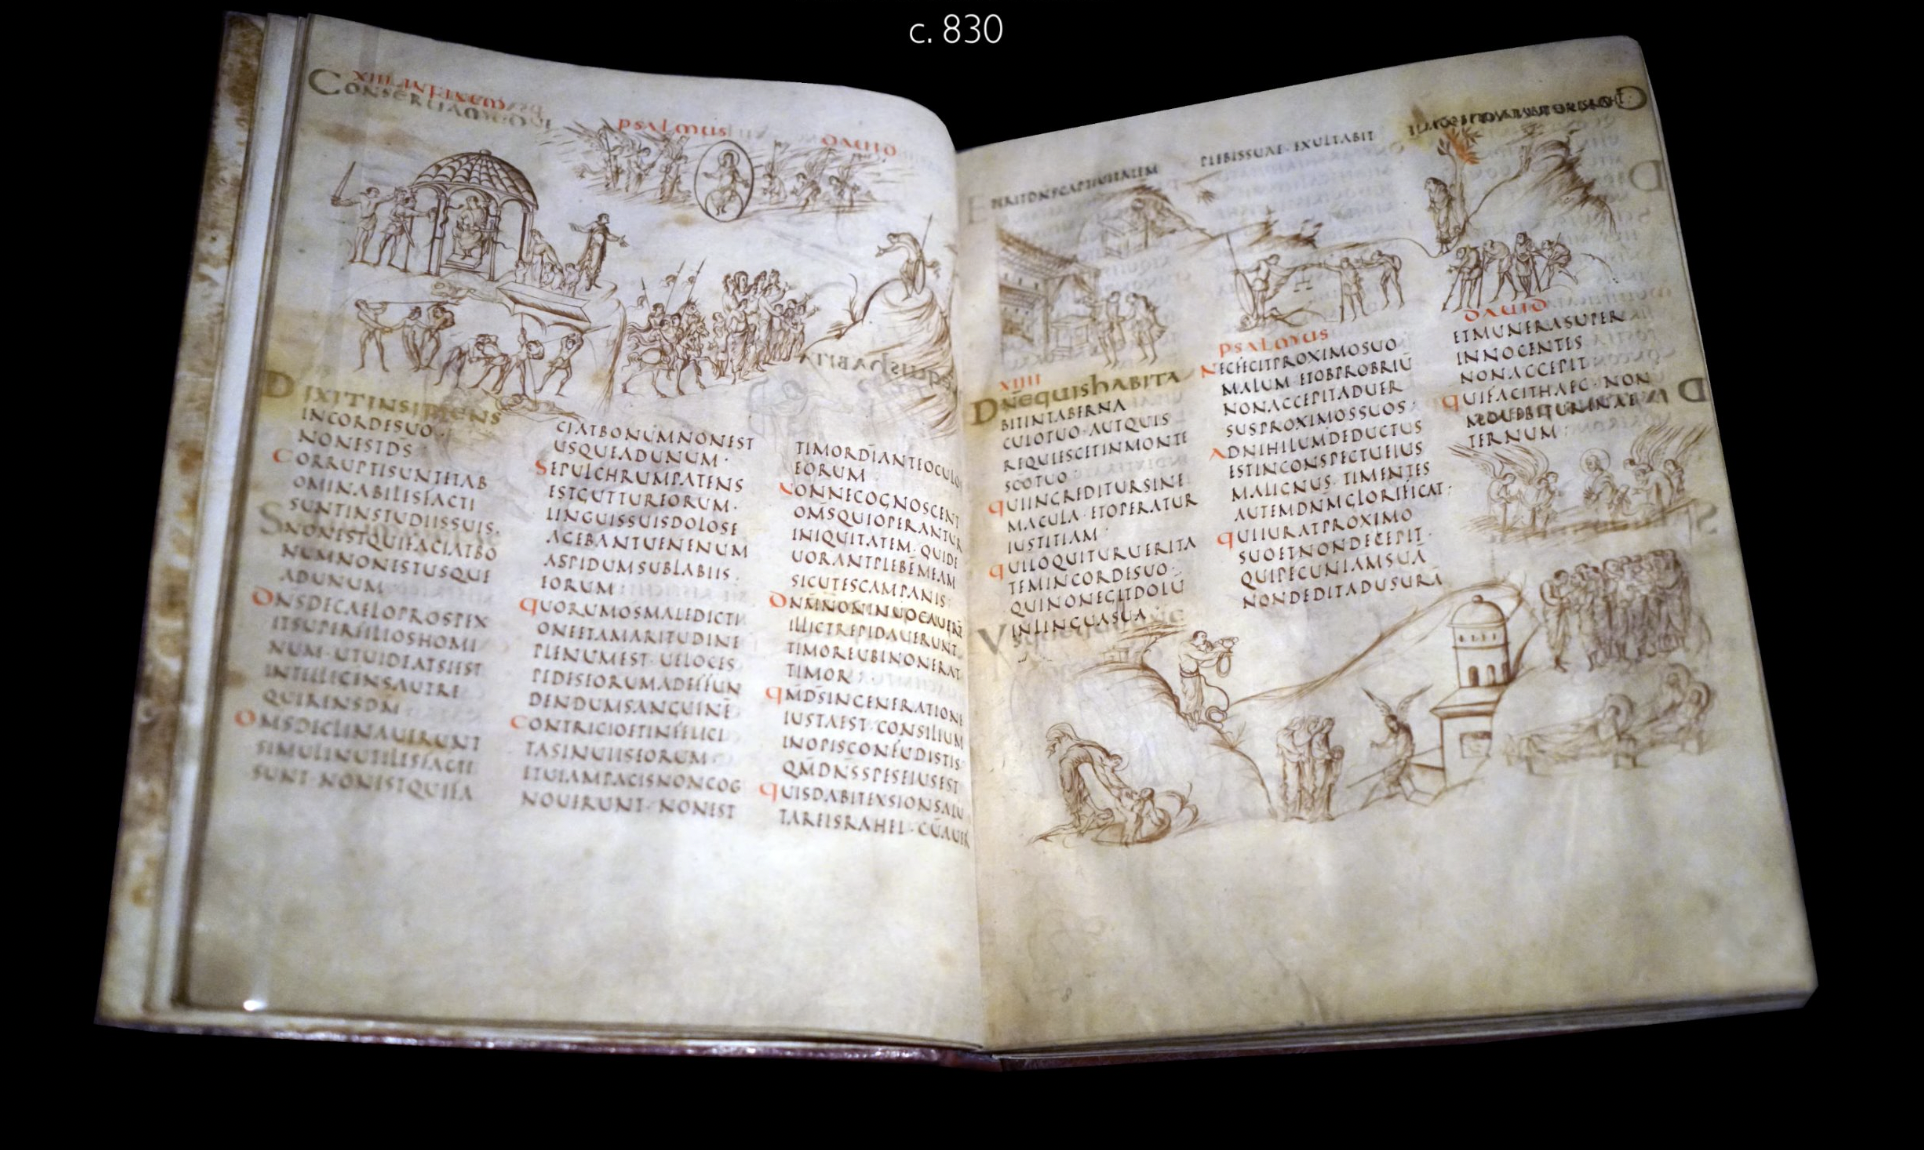 c. 830
XIII INFINEM
PSALMUS
DAUID
DIXITINSIPIENS
INCORDESUO·
NONESTDS
CORRUPTISUNTETAB
OMINABILESFACTI
SUNTINSTUDIISSUIS·
NONESTQUIFACIATBO
NUMNONESTUSQUE
ADUNUM
DNSDECAELOPROSPEX
ITSUPERFILIOSHOMI
NUM·UTUIDEATSIEST
INTELLEGENSAUTRE
QUIRENSDM
OMSDECLINAUERUNT
SIMULINUTILESFACTI
SUNT·NONESTQUIFA
CIATBONUMNONEST
USQUEADUNUM·
SEPULCHRUMPATENS
ESTGUTTUREORUM·
LINGUISSUISDOLOSE
AGEBANTUENENUM
ASPIDUMSUBLABIIS
EORUM
QUORUMOSMALEDICTI
ONEETAMARITUDINE
PLENUMEST·UELOCES
PEDESEORUMADEFFUN
DENDUMSANGUINĒ
CONTRICIOETINFELICI
TASINUIISEORUM·
ETUIAMPACISNONCOG
NOUERUNT·NONEST
TIMORDĪANTEOCULOS
EORUM
NONNECOGNOSCENT
OMSQUIOPERANTUR
INIQUITATEM·QUIDE
UORANTPLEBĒMEAM
SICUTESCAMPANIS
DNMNONINUOCAUERT
ILLICTREPIDAUERUNT
TIMOREUBINONERAT
TIMOR
QMDSINGENERATIONE
IUSTAEST·CONSILIUM
INOPISCONFUDISTIS
QMDNSSPESEIUSEST
QUISDABITEXSIONSALU
TAREISRAHEL·CŪAUER
PLEBISSUAE·EXULTABIT
XIIII
PSALMUS
DAUID
DNEQUISHABITA
BITINTABERNA
CULOTUO·AUTQUIS
REQUIESCETINMONTE
SCOTUO
QUIINGREDITURSINE
MACULA·ETOPERATUR
IUSTITIAM
QUILOQUITURUERITA
TEMINCORDESUO·
QUINONEGITDOLŪ
INLINGUASUA
NECFECITPROXIMOSUO
MALUM·ETOBPROBRIŪ
NONACCEPITADUER
SUSPROXIMOSSUOS·
ADNIHILUMDEDUCTUS
ESTINCONSPECTUEIUS
MALIGNUS·TIMENTES
AUTEMDNMGLORIFICAT·
QUIIURATPROXIMO
SUOETNONDECEPIT·
QUIPECUNIAMSUĀ
NONDEDITADUSURĀ
ETMUNERASUPER
INNOCENTES
NONACCEPIT
QUIFACITHAEC·NON
TERNUM